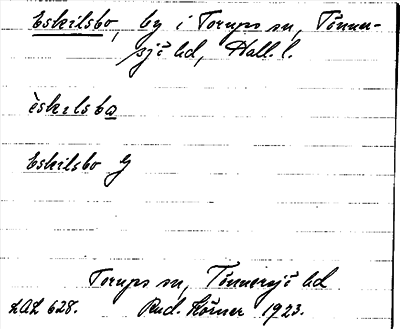 Eskilsbo, by i Torups sn, Tönner-
sjö hd, Hall. l.
èskɩlsbo
Eskilsbo
Torups sn, Tönnersjö hd
LAL 628. Rud. Körner 1923.